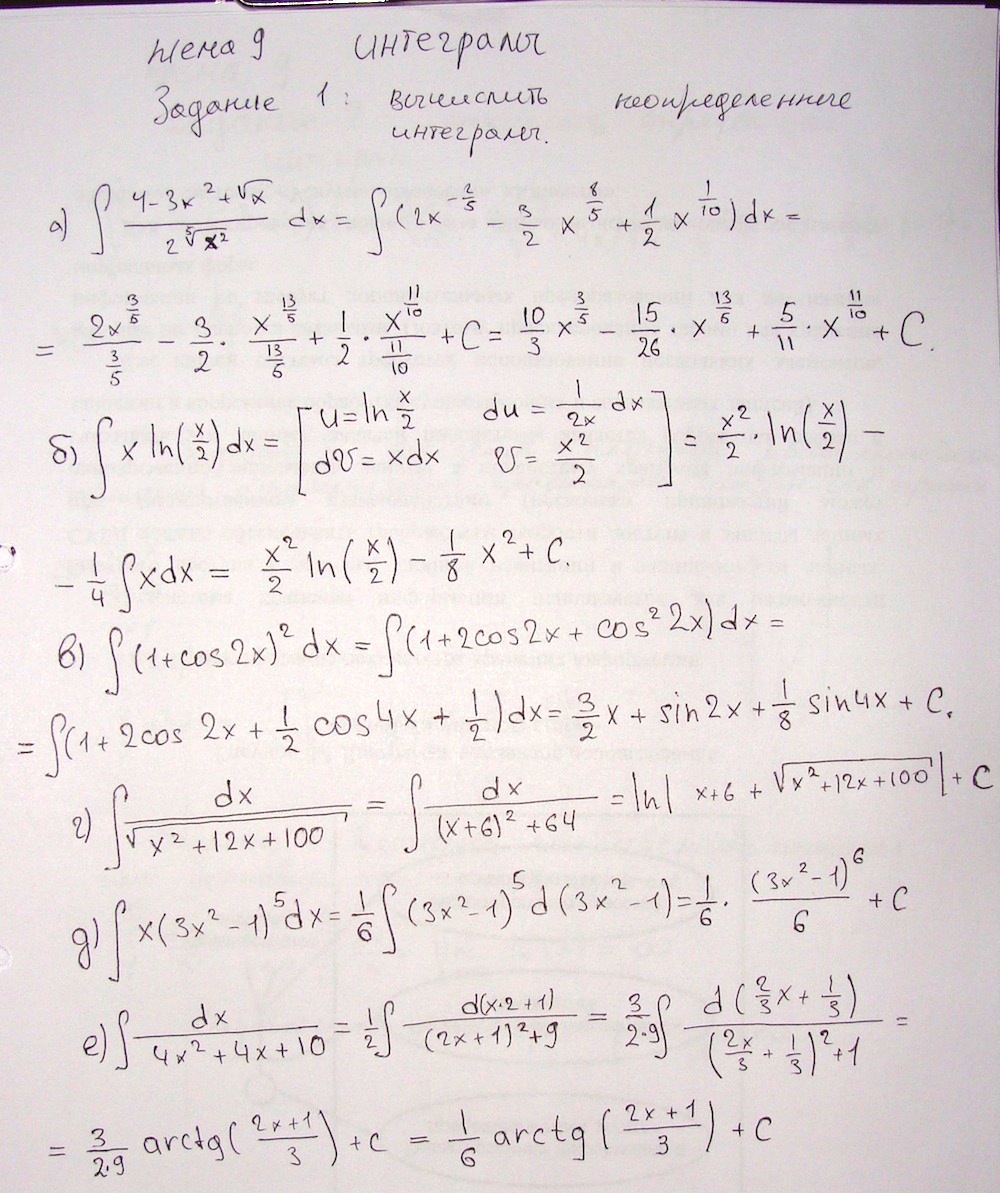 Тема 9 Интегралы
Задание 1: Вычислить неопределенные
интегралы.
а) ∫ (4-3x²+√x)/(2 ⁵√x²) dx = ∫(2x^(-2/5) 3/2 x^(8/5) + 1/2 x^(1/10))dx =
= 2x^(3/5)/(3/5) - 3/2 · x^(13/5)/(13/5) + 1/2 · x^(11/10)/(11/10) + C = 10/3 x^(3/5) - 15/26 · x^(13/5) + 5/11 x^(11/10) + C.
б) ∫ x ln(x/2) dx = [u = ln x/2 du = 1/(2x) dx dV = xdx V = x²/2] = x²/2 ln(x/2) -
- 1/4 ∫ xdx = x²/2 ln(x/2) - 1/8 x² + C.
в) ∫(1+cos2x)² dx = ∫(1+2cos2x + cos² 2x)dx =
= ∫(1+2cos 2x + 1/2 cos4x + 1/2)dx = 3/2 x + sin2x + 1/8 sin4x + C.
г) ∫ dx/√(x²+12x+100) = ∫ dx/((x+6)²+64) = ln| x+6 + √(x²+12x+100) | + C
д) ∫ x(3x²-1)⁵dx = 1/6 ∫(3x²-1)⁵d(3x²-1) = 1/6 · (3x²-1)⁶/6 + C
е) ∫ dx/(4x²+4x+10) = 1/2 ∫ d(x·2+1)/((2x+1)²+9) = 3/(2·9) ∫ d(2/3 x + 1/3)/((2x/3 + 1/3)²+1) =
= 3/(2·9) arctg((2x+1)/3) + C = 1/6 arctg((2x+1)/3) + C